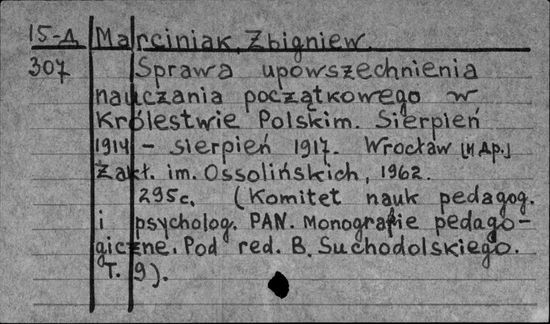 15-Д Marciniak, Zbigniew.
307 Sprawa upowszechnienia
nauczania początkowego w
Królestwie Polskim. Sierpień
1914 - sierpień 1917. Wrocław [и др.]
Zakł. im. Ossolińskich, 1962.
295c. (Komitet nauk pedagog.
i psycholog. PAN. Monografie pedago-
giczne. Pod red. B. Suchodolskiego.
T. 9).